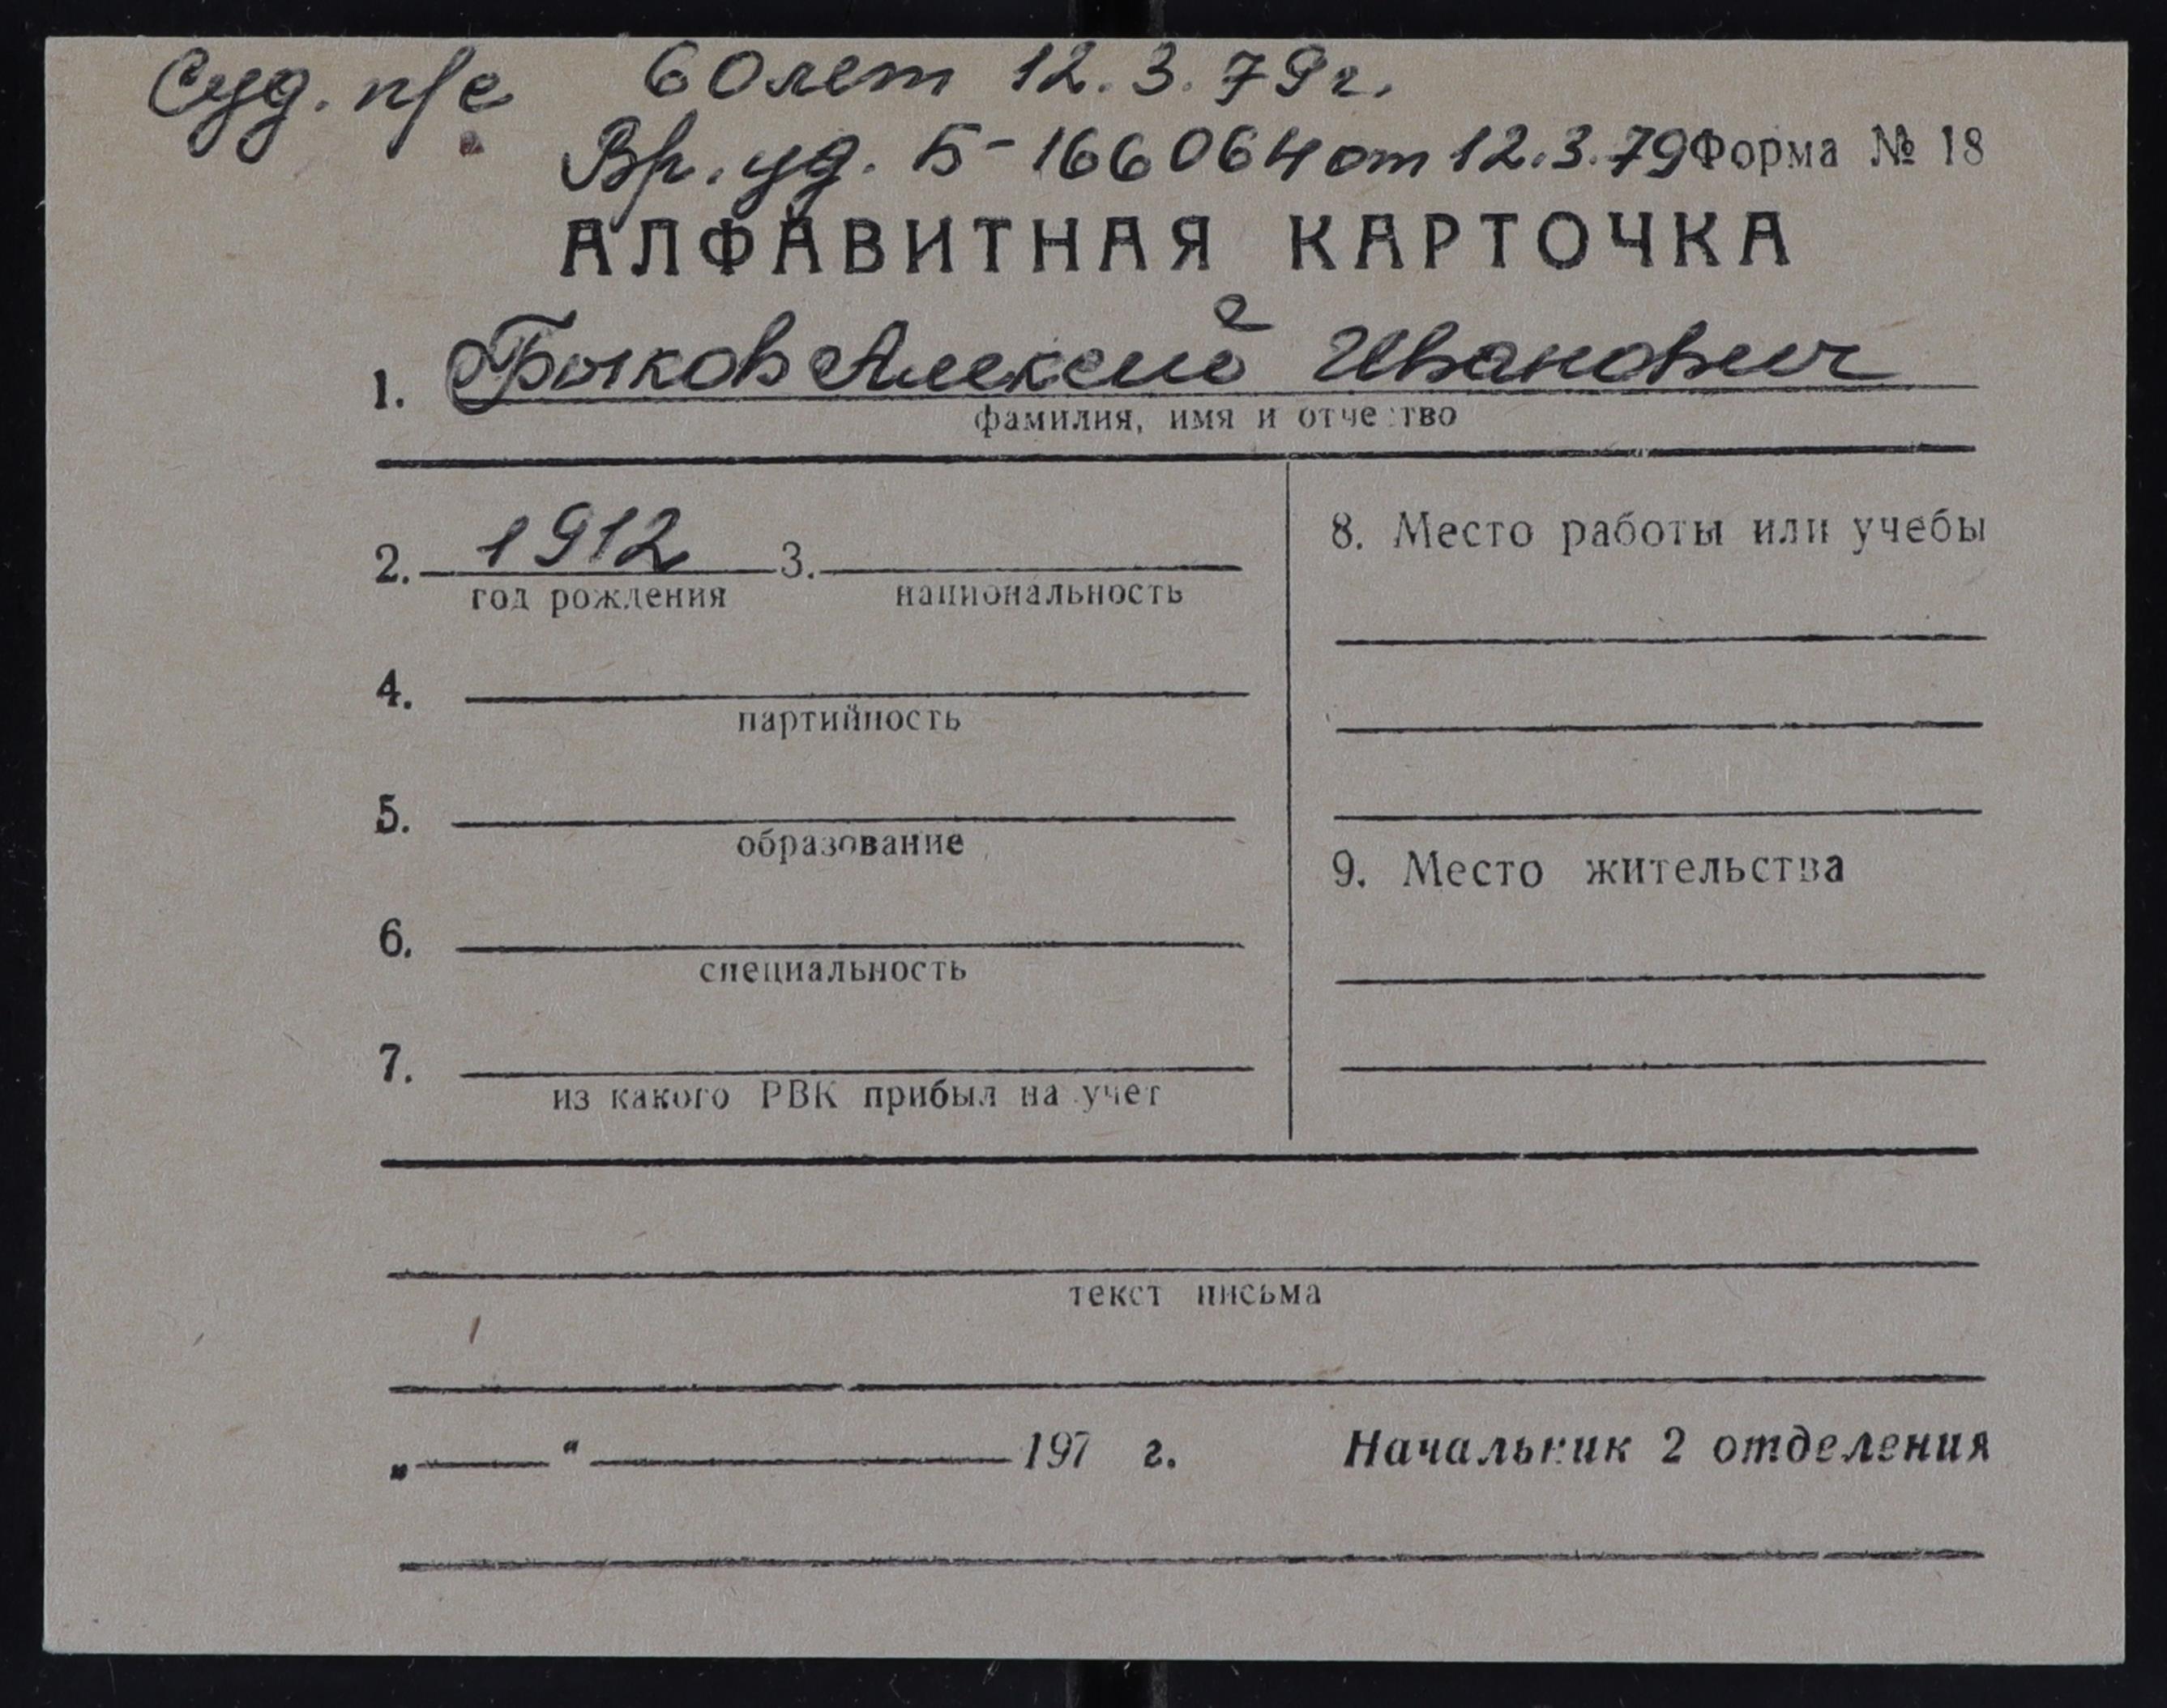 Суд. п/с 60 лет 12.3.79 г.
Вр. уд. Б-166064 от 12.3.79 Форма № 18
АЛФАВИТНАЯ КАРТОЧКА
1. Быков Алексей Иванович
фамилия, имя и отчество
2. 1912 3.
год рождения национальность
4.
партийность
5.
образование
6.
специальность
7.
из какого РВК прибыл на учет
8. Место работы или учебы
9. Место жительства
текст письма
„ “ 197 г. Начальник 2 отделения